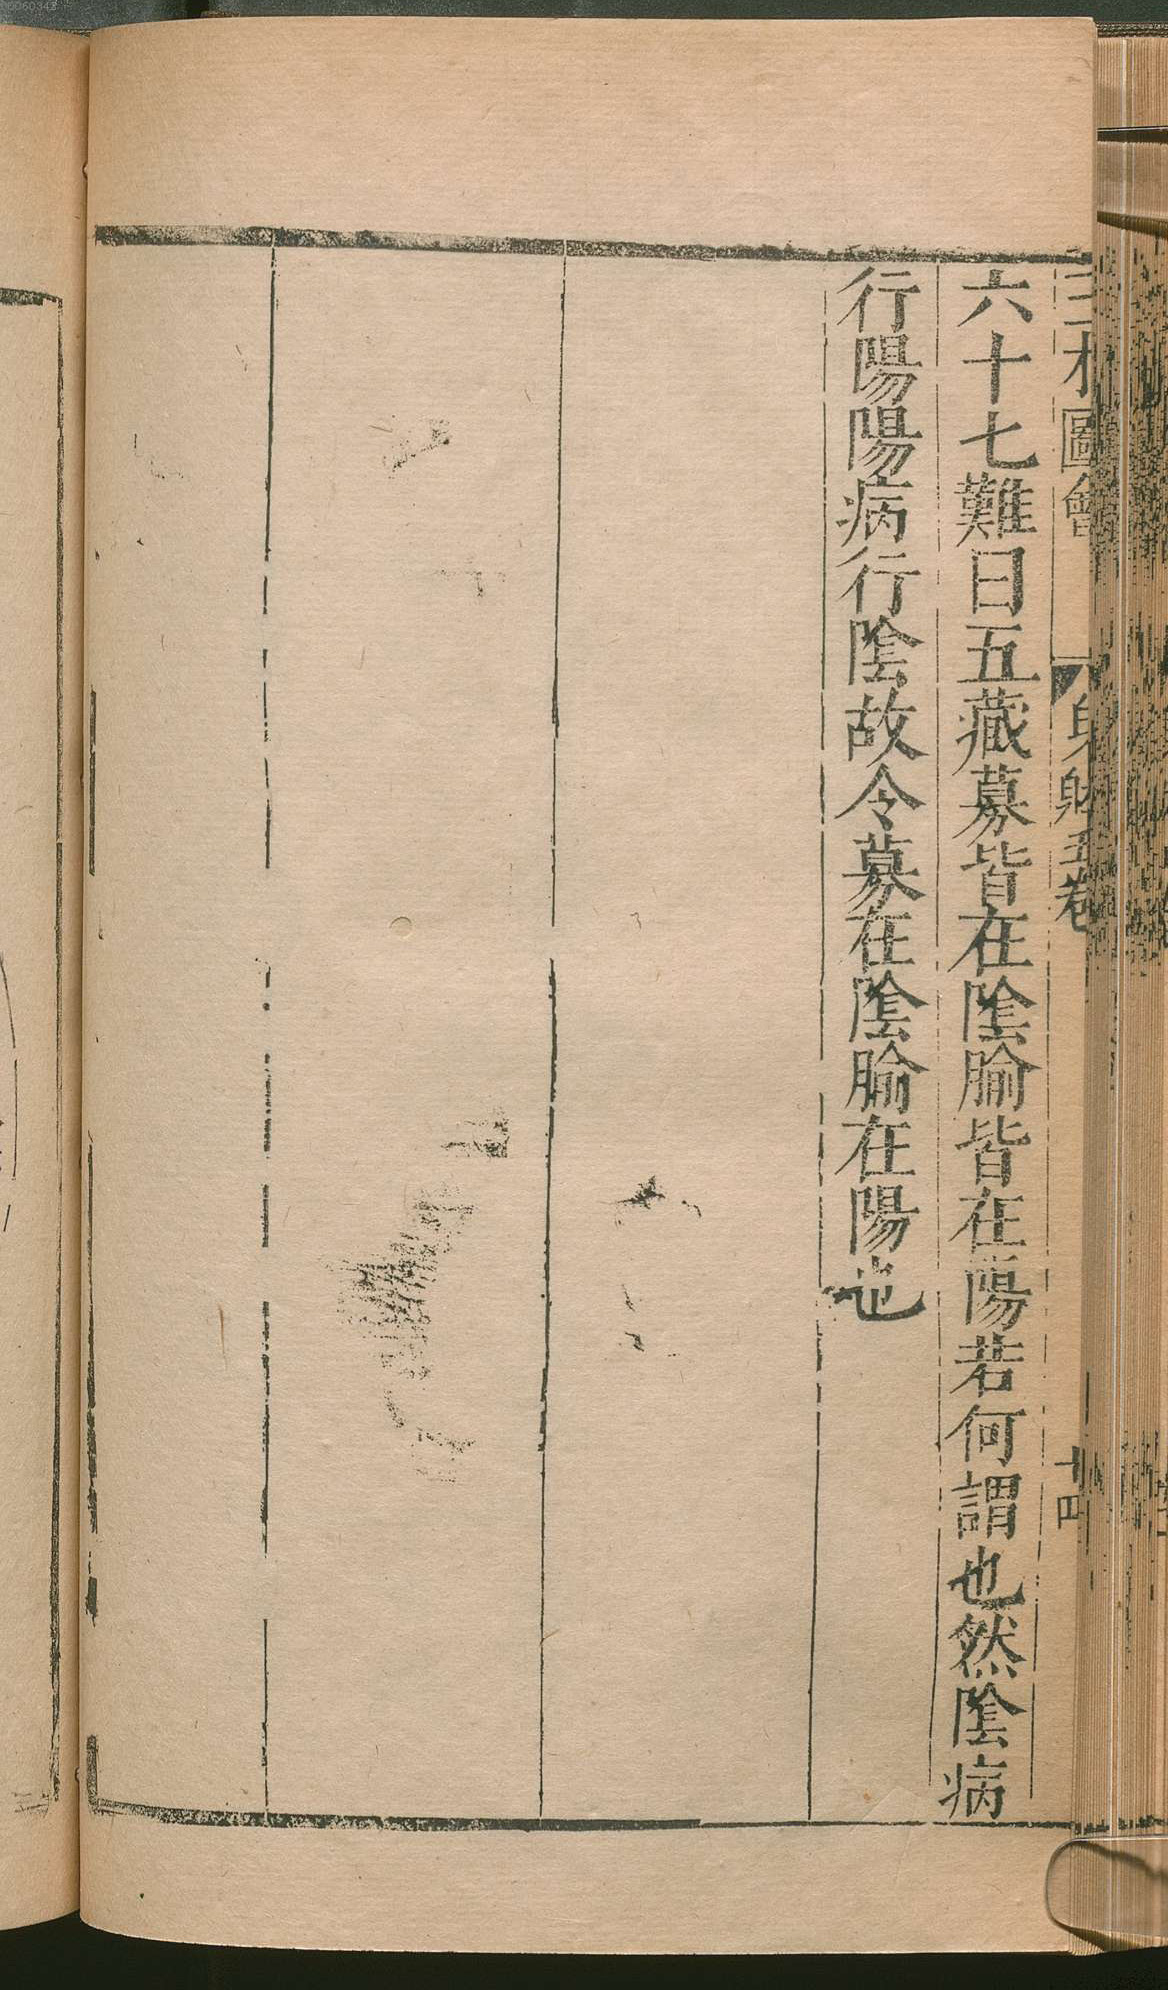 三才圖會 身體五卷 十四
六十七難曰五藏募皆在陰腧皆在陽若何謂也然陰病
行陽陽病行陰故令募在陰腧在陽也